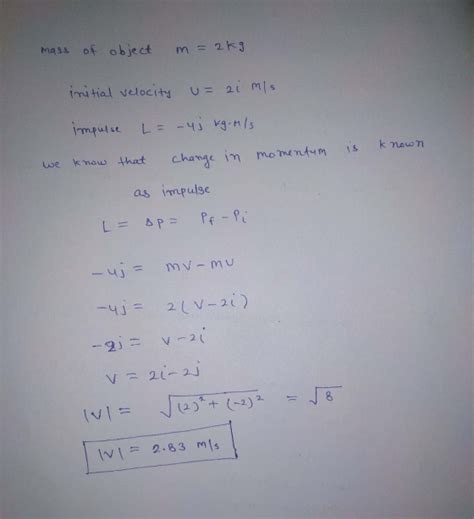 mass of object m = 2kg
initial velocity u = 2i m/s
impulse L = -4j kg-m/s
we know that change in momentum is known
as impulse
L = Δp = Pf - Pi
-4j = mv - mu
-4j = 2(v-2i)
-2j = v-2i
v = 2i-2j
|v| = √(2)²+(-2)² = √8
|v| = 2.83 m/s